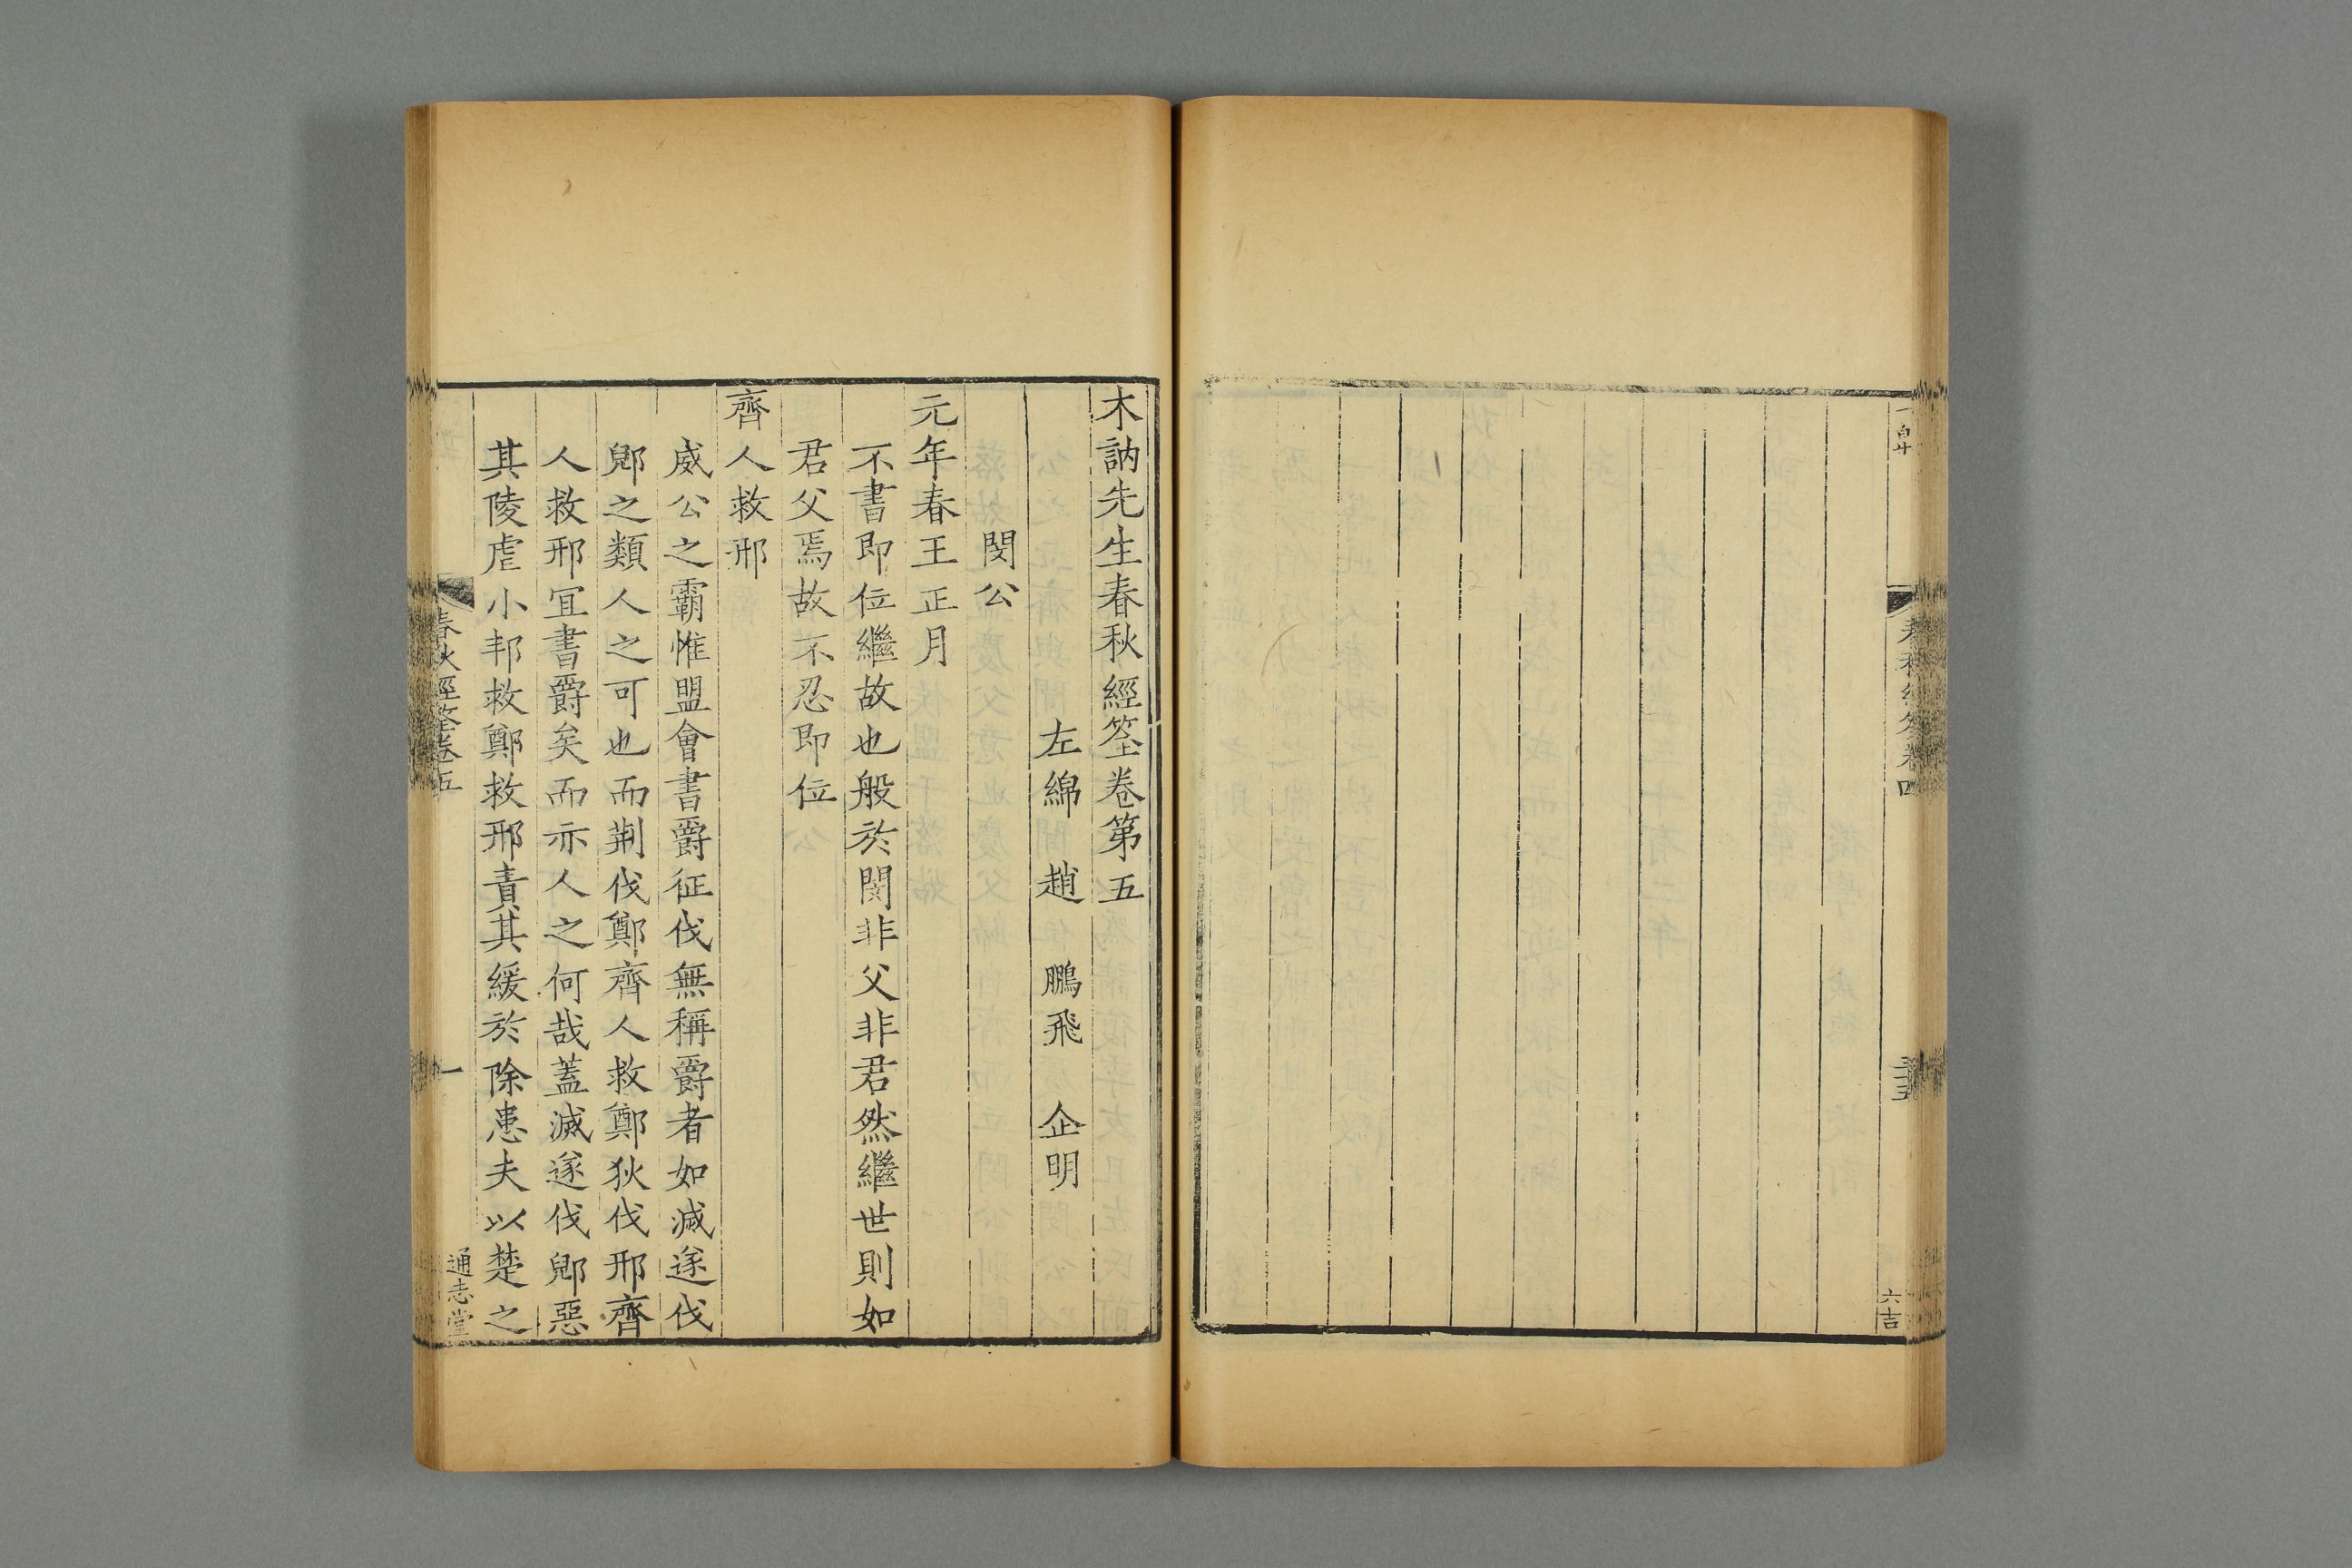 春秋經筌卷四
三十五
六吉
木訥先生春秋經筌卷第五
左綿 趙 鵬飛 企明
閔公
元年春王正月
不書即位繼故也般於閔非父非君然繼世則如
君父焉故不忍即位
齊人救邢
威公之霸惟盟會書爵征伐無稱爵者如滅遂伐
郳之類人之可也而荆伐鄭齊人救鄭狄伐邢齊
人救邢宜書爵矣而亦人之何哉蓋滅遂伐郳惡
其陵虐小邦救鄭救邢責其緩於除患夫以楚之
春秋經筌卷五
一
通志堂